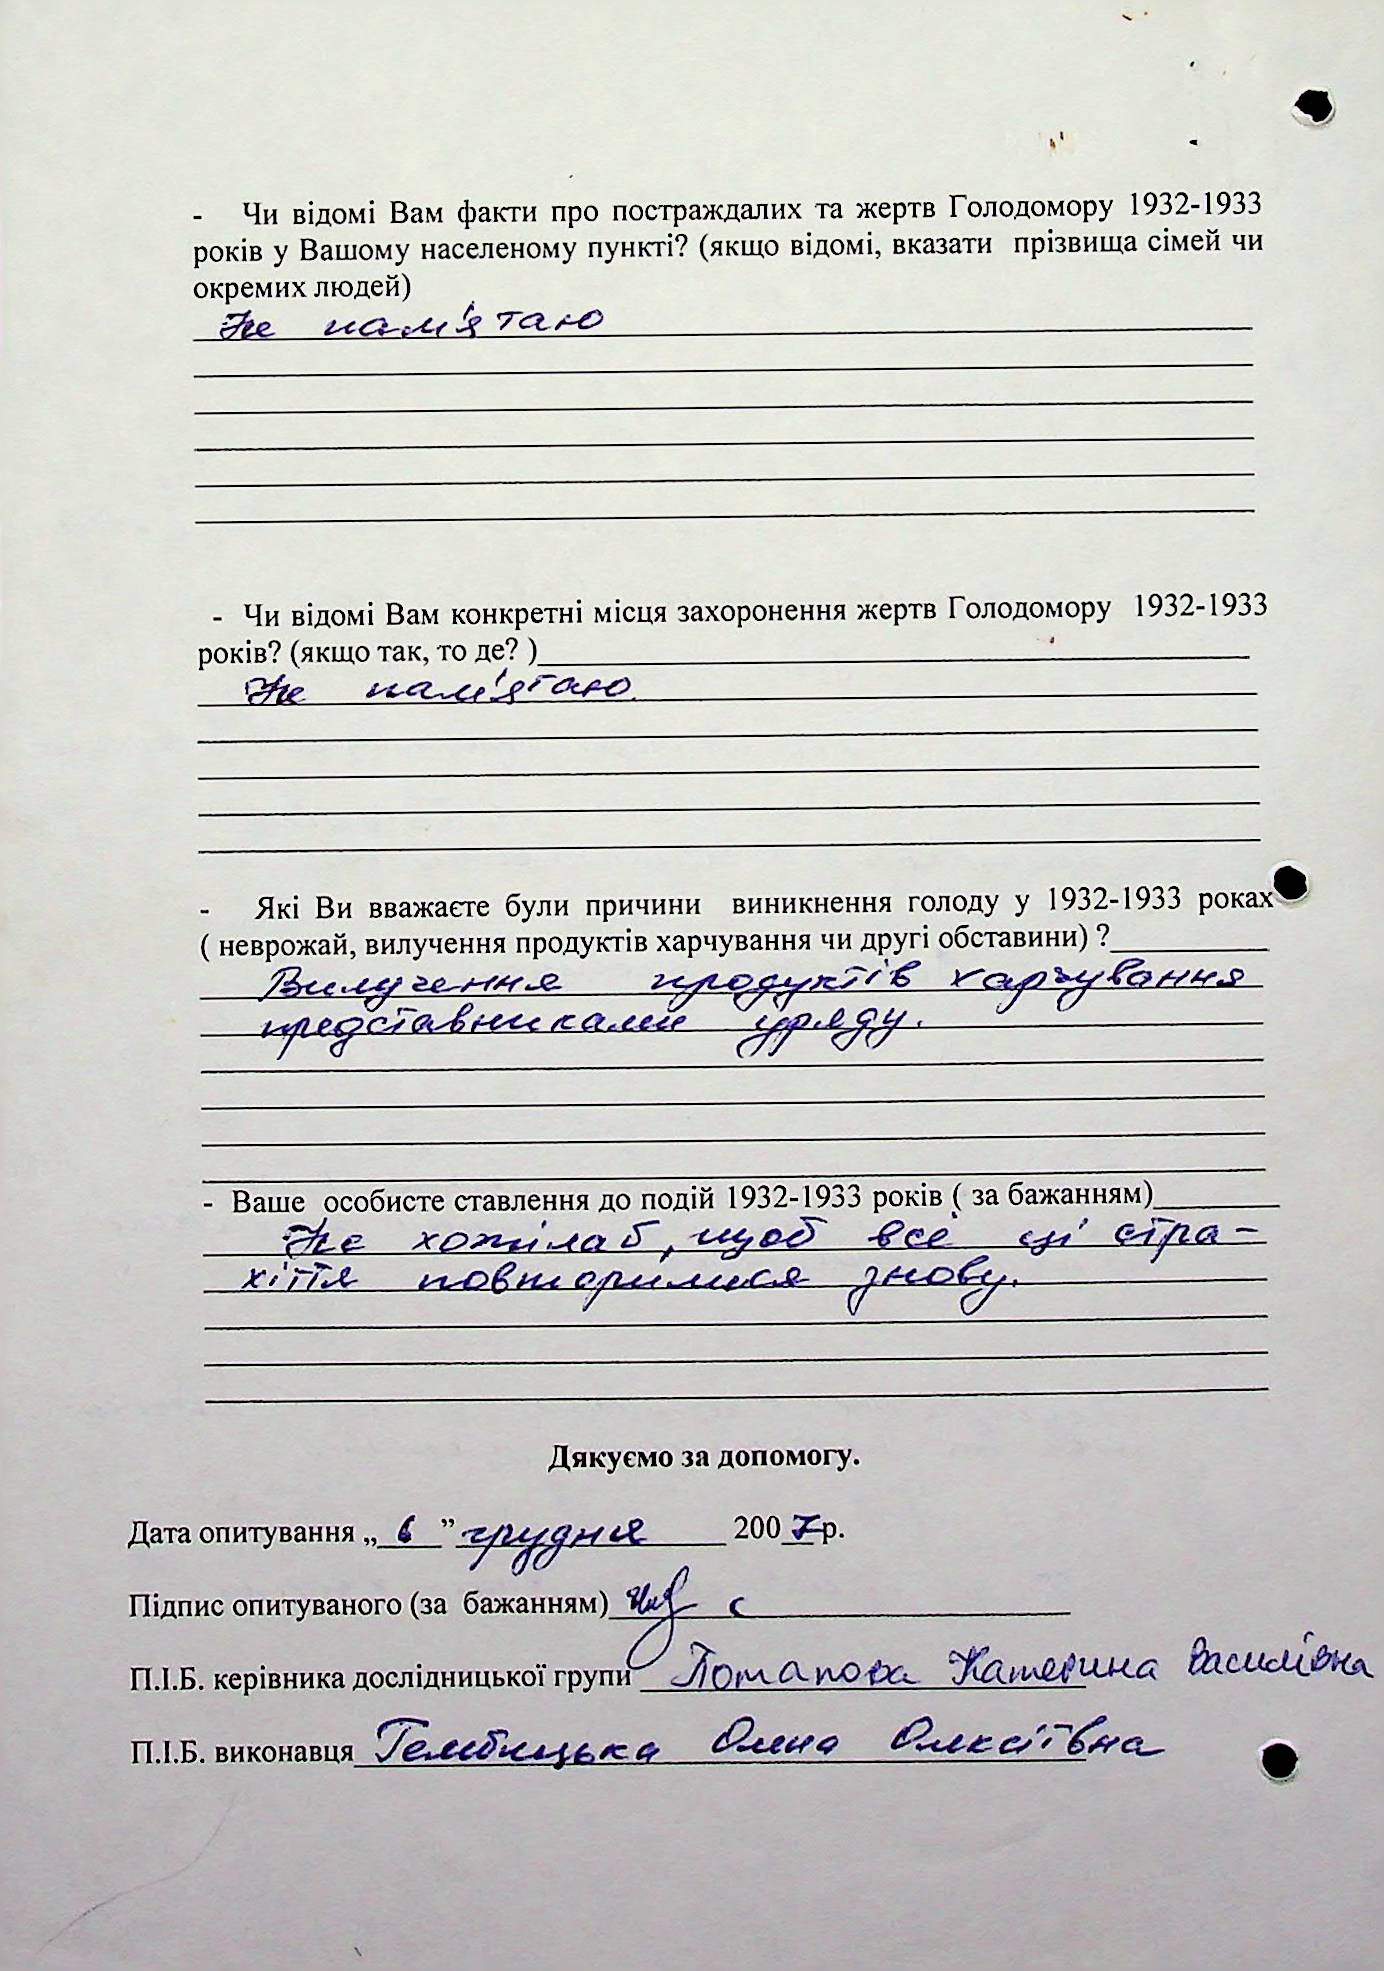 - Чи відомі Вам факти про постраждалих та жертв Голодомору 1932-1933
років у Вашому населеному пункті? (якщо відомі, вказати прізвища сімей чи
окремих людей)
Не пам'ятаю
- Чи відомі Вам конкретні місця захоронення жертв Голодомору 1932-1933
років? (якщо так, то де? )
Не пам'ятаю
- Які Ви вважаєте були причини виникнення голоду у 1932-1933 роках
( неврожай, вилучення продуктів харчування чи другі обставини) ?
Вилучення продуктів харчування
представниками уряду.
- Ваше особисте ставлення до подій 1932-1933 років ( за бажанням)
Не хотіла б, щоб все ці стра-
хіття повторилися знову.
Дякуємо за допомогу.
Дата опитування „ 6 ” грудня 2007 р.
Підпис опитуваного (за бажанням)
П.І.Б. керівника дослідницької групи Потапова Катерина Василівна
П.І.Б. виконавця Гембицька Олена Олексіївна